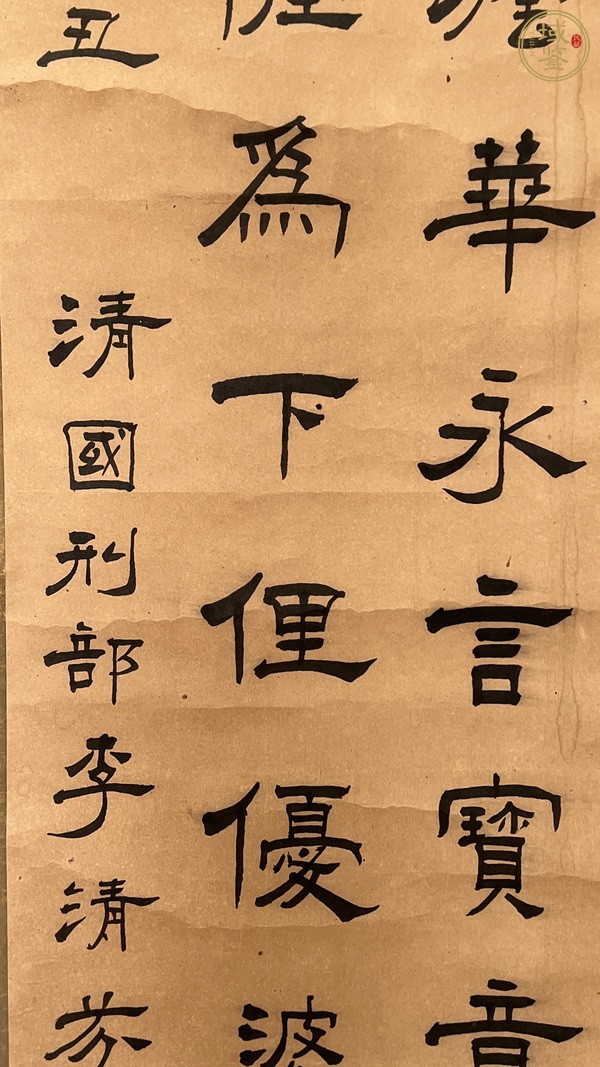 華永言寶音
為下俚優波
丑 清國刑部李清芬